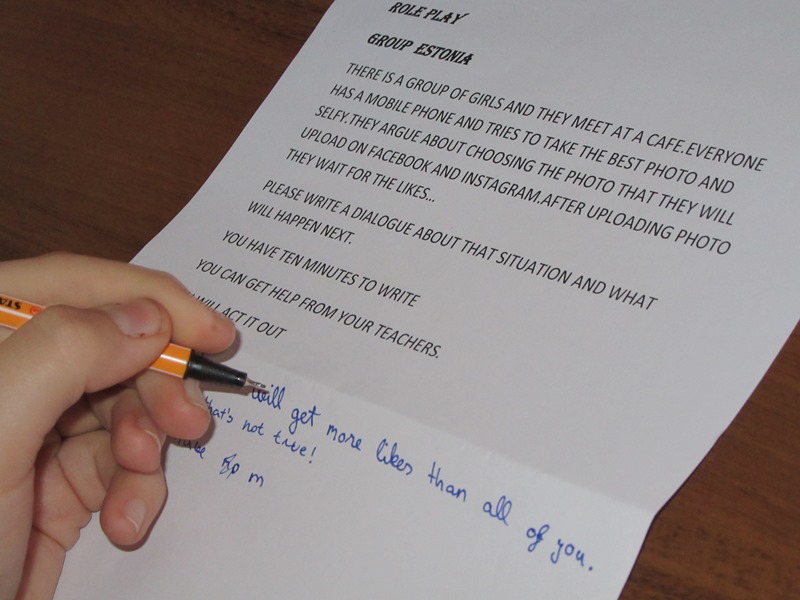 ROLE PLAY
GROUP ESTONIA
THERE IS A GROUP OF GIRLS AND THEY MEET AT A CAFE.EVERYONE
HAS A MOBILE PHONE AND TRIES TO TAKE THE BEST PHOTO AND
SELFY.THEY ARGUE ABOUT CHOOSING THE PHOTO THAT THEY WILL
UPLOAD ON FACEBOOK AND INSTAGRAM.AFTER UPLOADING PHOTO
THEY WAIT FOR THE LIKES...
PLEASE WRITE A DIALOGUE ABOUT THAT SITUATION AND WHAT
WILL HAPPEN NEXT.
YOU HAVE TEN MINUTES TO WRITE
YOU CAN GET HELP FROM YOUR TEACHERS.
WILL ACT IT OUT
will get more likes than all of you.
that's not true!
m
STA